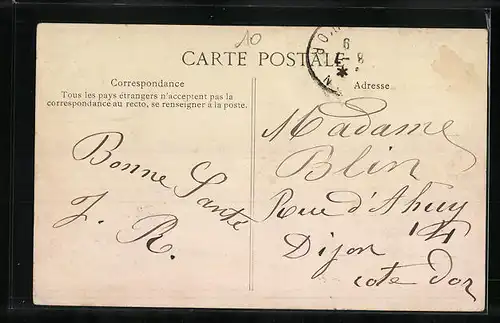 10
CARTE POSTALE
Correspondance
Tous les pays étrangers n'acceptent pas la
correspondance au recto, se renseigner à la poste.
Bonne Santé
J. R.
Adresse
Madame
Blin
Rue d'Ahuy
14
Dijon
cote d'or